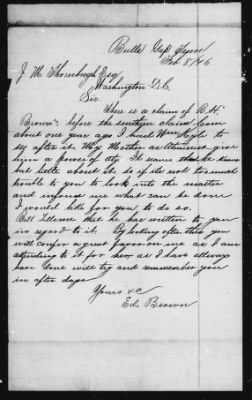 Bulls Gap Tenn
Feb 8/76
J. M. Thornburgh Esq
Washington D.C.
Sir
There is a claim of R. H.
Brown's before the southern claim Com
about one year ago I hired Wm
to see after it. My Mother as Administ give
him a power of atty. It seams that he knows
but little about it. So if its not too much
trouble to you to look into the matter
and inform me what can be done
I would like for you to do so.
Bill says that he has written to you
in regard to it. By looking after this you
will confer a great favor on me as I am
attending to it for her, as I have allways
have done will try and remember you
in after days
Yours &c
Ed. Brown